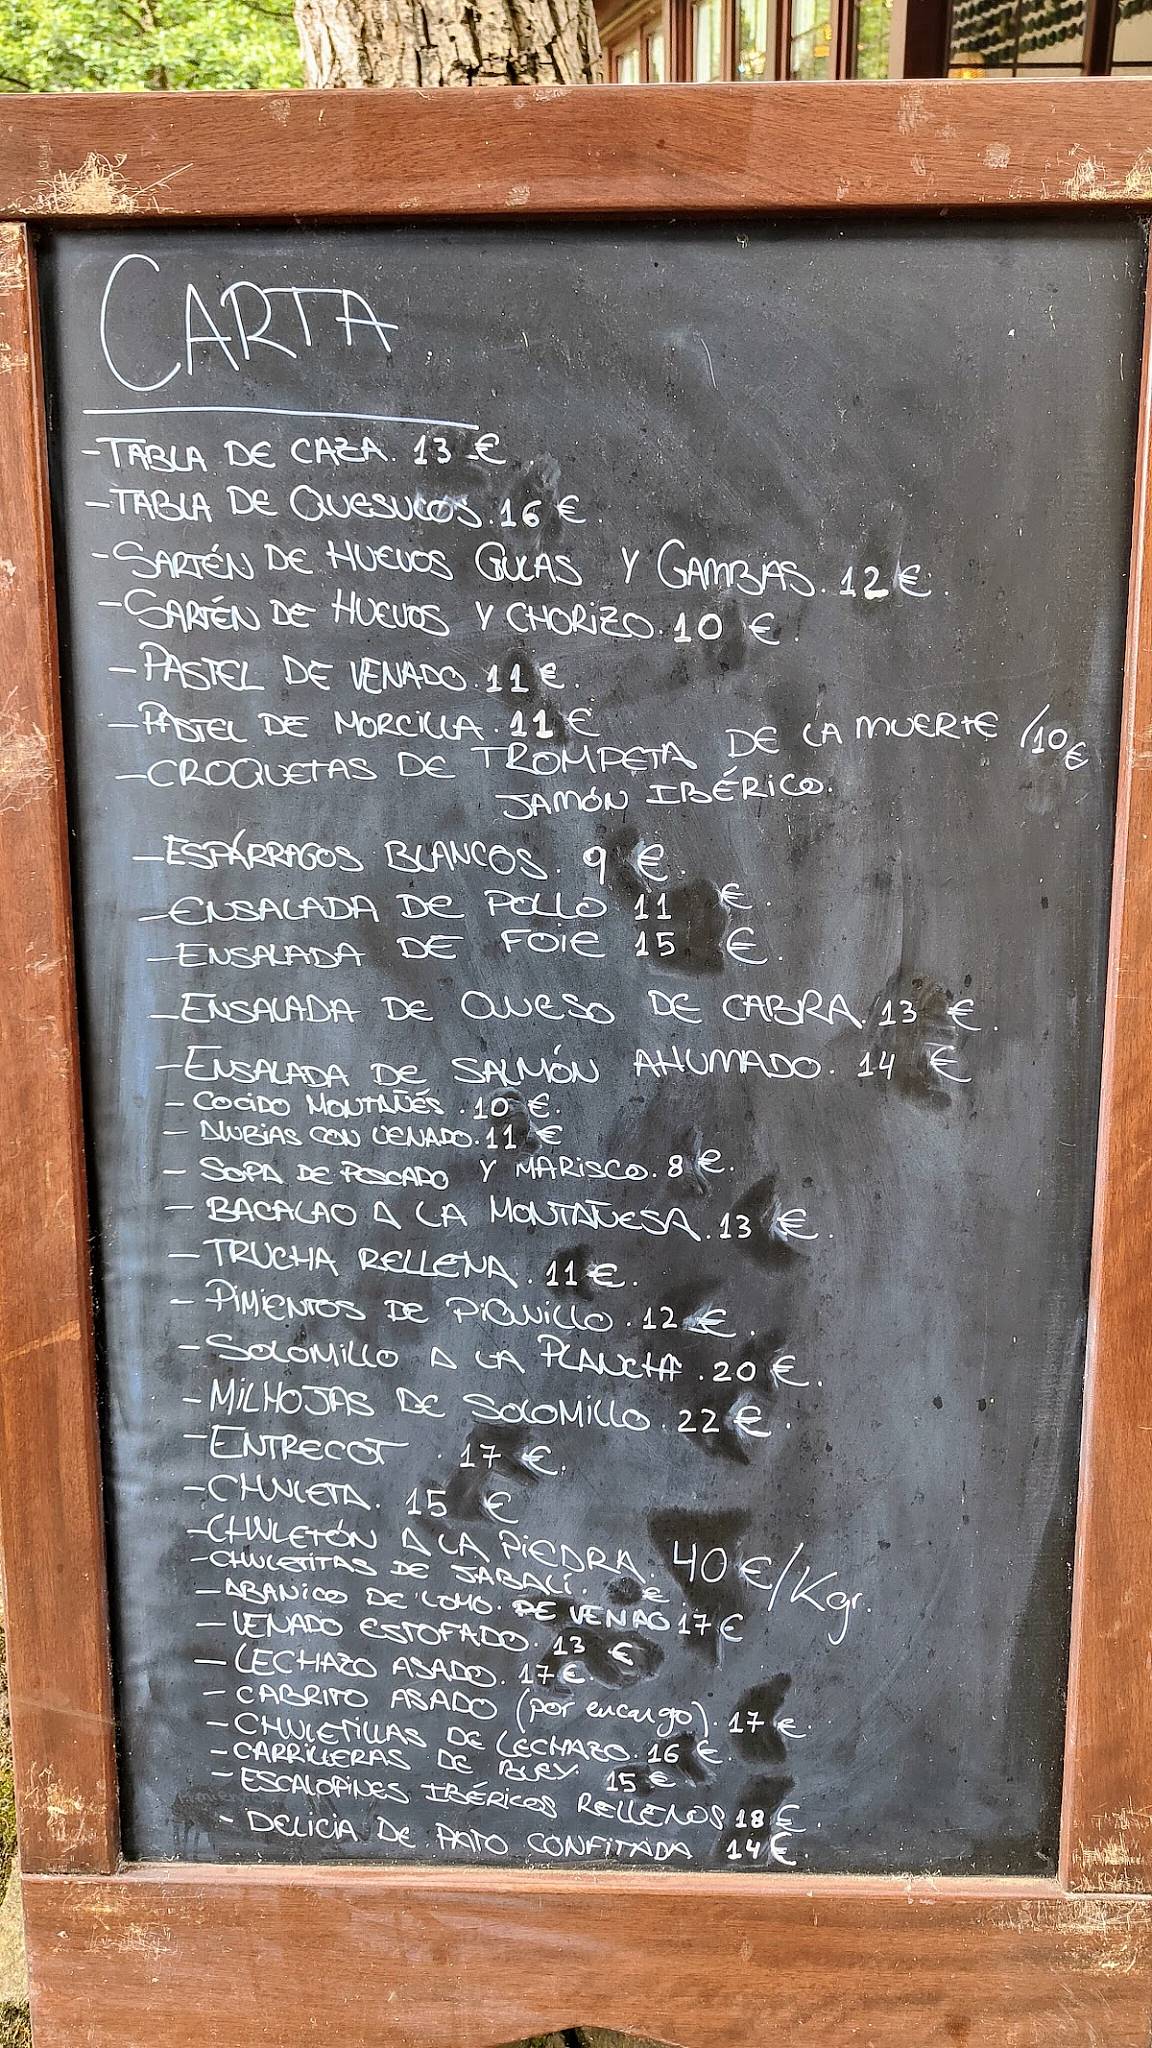 CARTA
-TABLA DE CAZA. 13 €
-TABLA DE QUESUCOS. 16 €.
-SARTÉN DE HUEVOS GULAS Y GAMBAS. 12 €.
-SARTÉN DE HUEVOS Y CHORIZO. 10 €.
-PASTEL DE VENADO. 11 €.
-PASTEL DE MORCILLA. 11 €
-CROQUETAS DE TROMPETA DE LA MUERTE /10 €
JAMÓN IBÉRICO.
-ESPÁRRAGOS BLANCOS. 9 €.
-ENSALADA DE POLLO 11 €.
-ENSALADA DE FOIE 15 €.
-ENSALADA DE QUESO DE CABRA. 13 €.
-ENSALADA DE SALMÓN AHUMADO. 14 €
- COCIDO MONTAÑÉS. 10 €.
- ALUBIAS CON VENADO. 11 €
- SOPA DE PESCADO Y MARISCO. 8 €.
- BACALAO A LA MONTAÑESA. 13 €.
- TRUCHA RELLENA. 11 €.
- PIMIENTOS DE PIQUILLO. 12 €.
- SOLOMILLO A LA PLANCHA. 20 €.
- MILHOJAS DE SOLOMILLO. 22 €.
- ENTRECOT. 17 €.
- CHULETA. 15 €
-CHULETÓN A LA PIEDRA. 40 €/Kgr.
-CHULETITAS DE JABALÍ. €
- ABANICO DE LOMO. DE VENAO 17 €
- VENADO ESTOFADO. 13 €
- LECHAZO ASADO. 17 €
- CABRITO ASADO (por encargo). 17 €.
- CHULETILLAS DE LECHAZO. 16 €.
-CARRILLERAS DE BUEY 15 €.
- ESCALOPINES IBÉRICOS RELLENOS 18 €.
- DELICIA DE PATO CONFITADA 14 €.